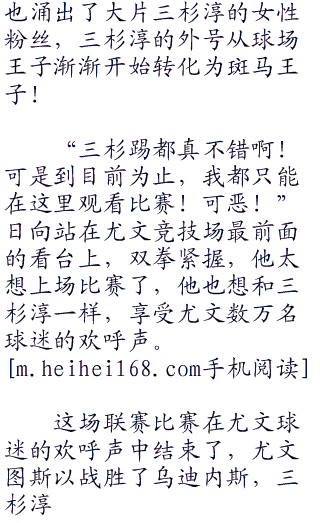 也涌出了大片三杉淳的女性
粉丝，三杉淳的外号从球场
王子渐渐开始转化为斑马王
子！
“三杉踢都真不错啊！
可是到目前为止，我都只能
在这里观看比赛！可恶！”
日向站在尤文竞技场最前面
的看台上，双拳紧握，他太
想上场比赛了，他也想和三
杉淳一样，享受尤文数万名
球迷的欢呼声。
[m.heihei168.com手机阅读]
这场联赛比赛在尤文球
迷的欢呼声中结束了，尤文
图斯以战胜了乌迪内斯，三
杉淳